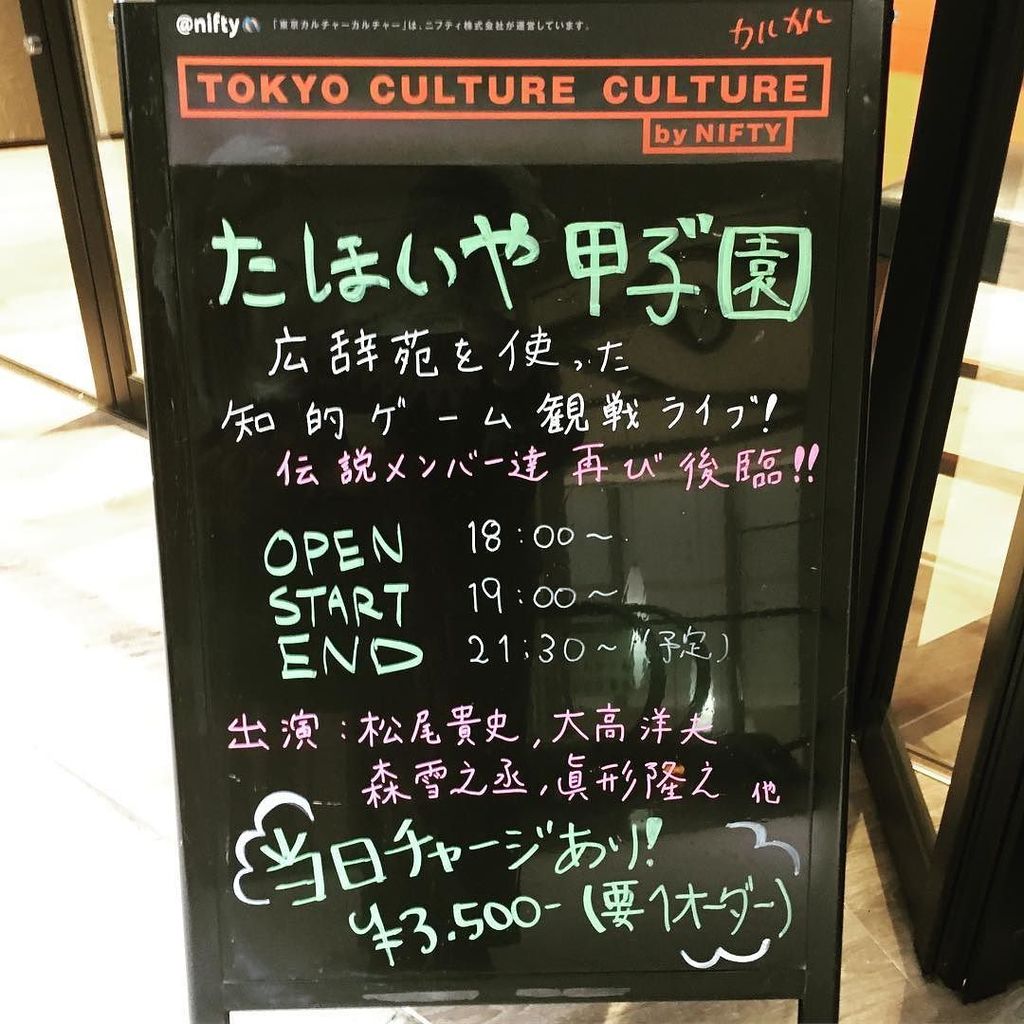 @nifty 「東京カルチャーカルチャー」は、ニフティ株式会社が運営しています。
カルカル
TOKYO CULTURE CULTURE
by NIFTY
たほいや甲子園
広辞苑を使った
知的ゲーム観戦ライブ!
伝説メンバー達再び後臨!!
OPEN 18:00~
START 19:00~
END 21:30~(予定)
出演:松尾貴史,大高洋夫
森雪之丞,眞形隆之 他
当日チャージあり!
¥3.500-(要1オーダー)